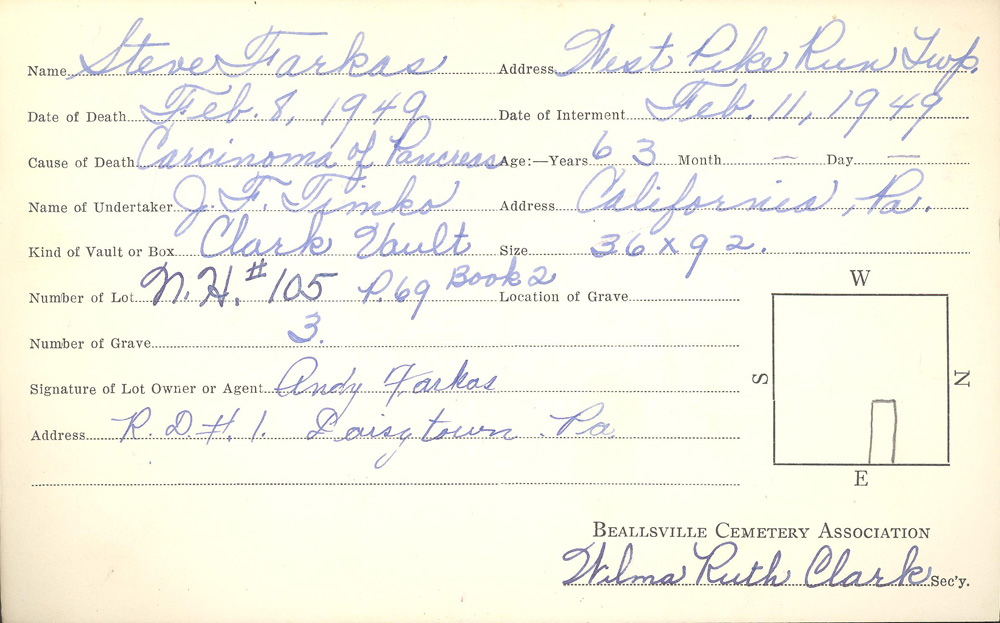 Name Steve Farkas Address West Pike Run Twp.
Date of Death Feb. 8, 1949 Date of Interment Feb. 11, 1949
Cause of Death Carcinoma of Pancreas Age:—Years 63 Month — Day —
Name of Undertaker J. F. Timko Address California, Pa.
Kind of Vault or Box Clark Vault Size 36 x 92.
Number of Lot N. H. # 105 P. 69 Book 2 Location of Grave
W
Number of Grave 3.
S N
Signature of Lot Owner or Agent Andy Farkas
Address R. D. #. 1. Daisytown Pa.
E
BEALLSVILLE CEMETERY ASSOCIATION
Wilma Ruth Clark Sec'y.